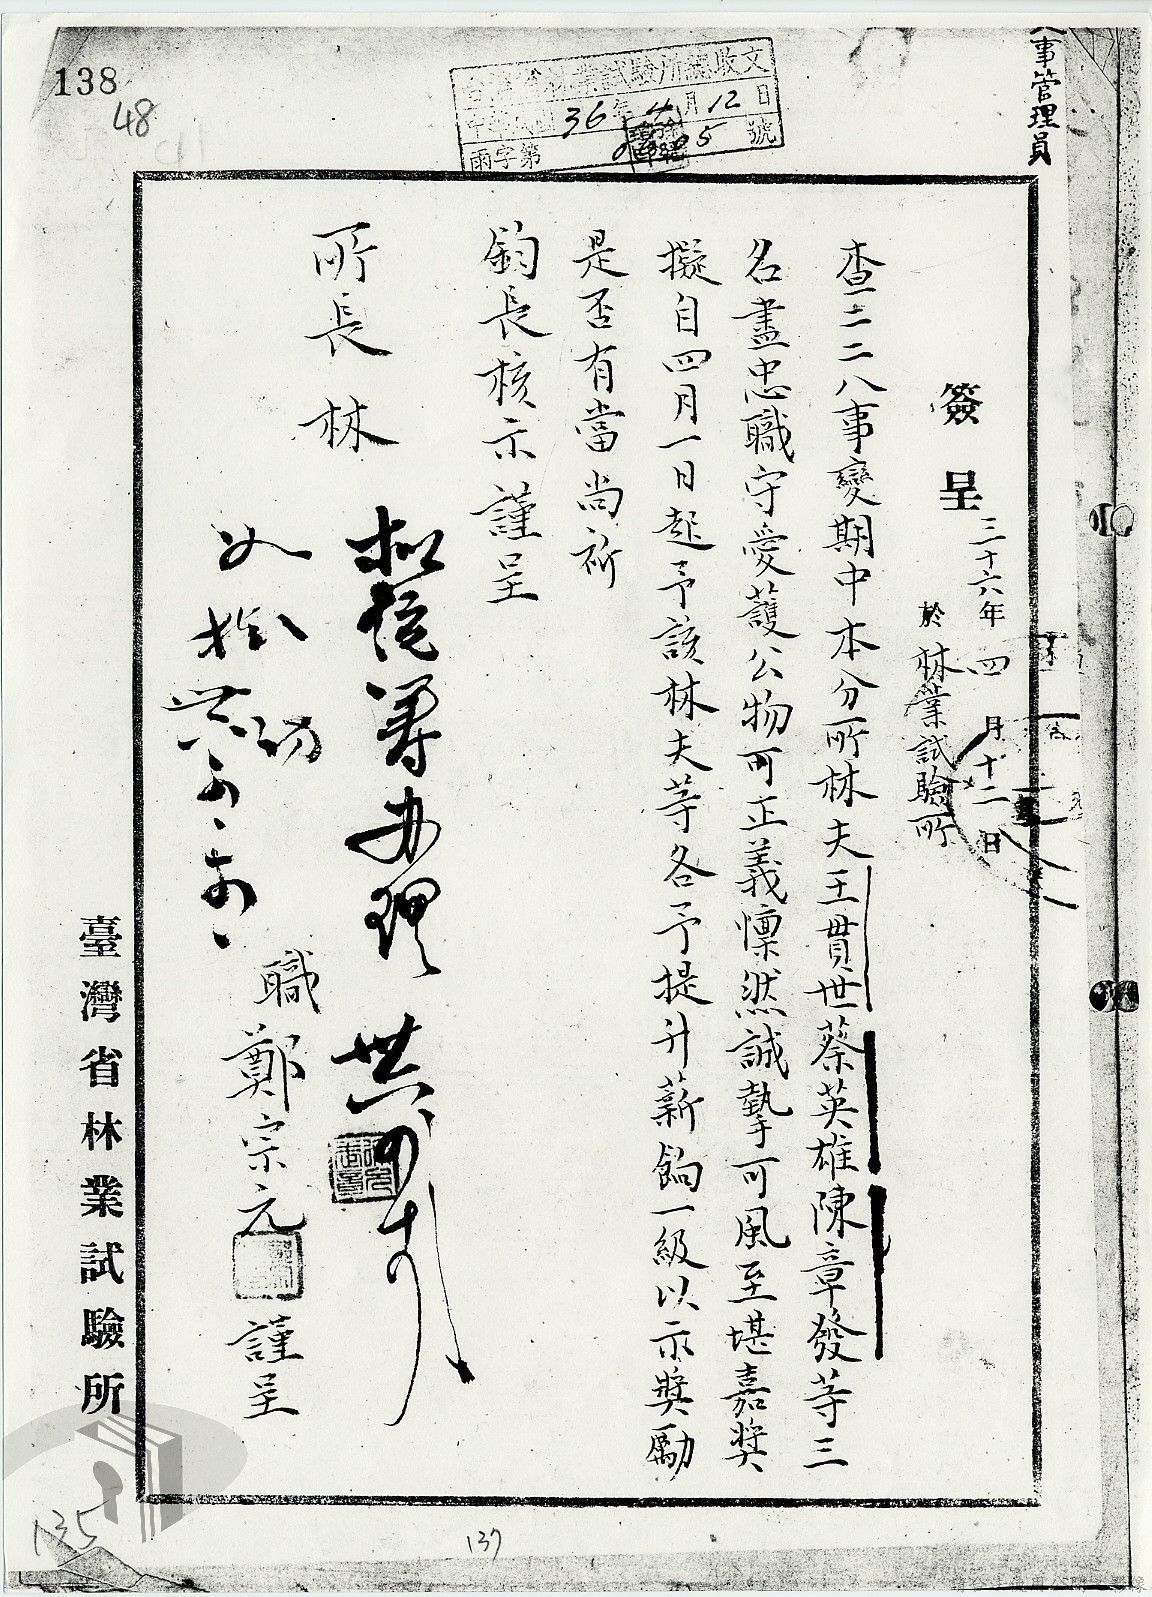 138
48
台灣省林業試驗所總收文
中華民國36年4月12日
雨字第 號
人事管理員
簽呈
三十六年四月十二日
於林業試驗所
查二二八事變期中本分所林夫王貫世蔡英雄陳章發等三
名盡忠職守愛護公物可正義懍然誠摯可風至堪嘉獎
擬自四月一日起予該林夫等各予提升薪餉一級以示獎勵
是否有當尚祈
鈞長核示謹呈
所長林
職鄭宗元謹呈
臺灣省林業試驗所
135
137